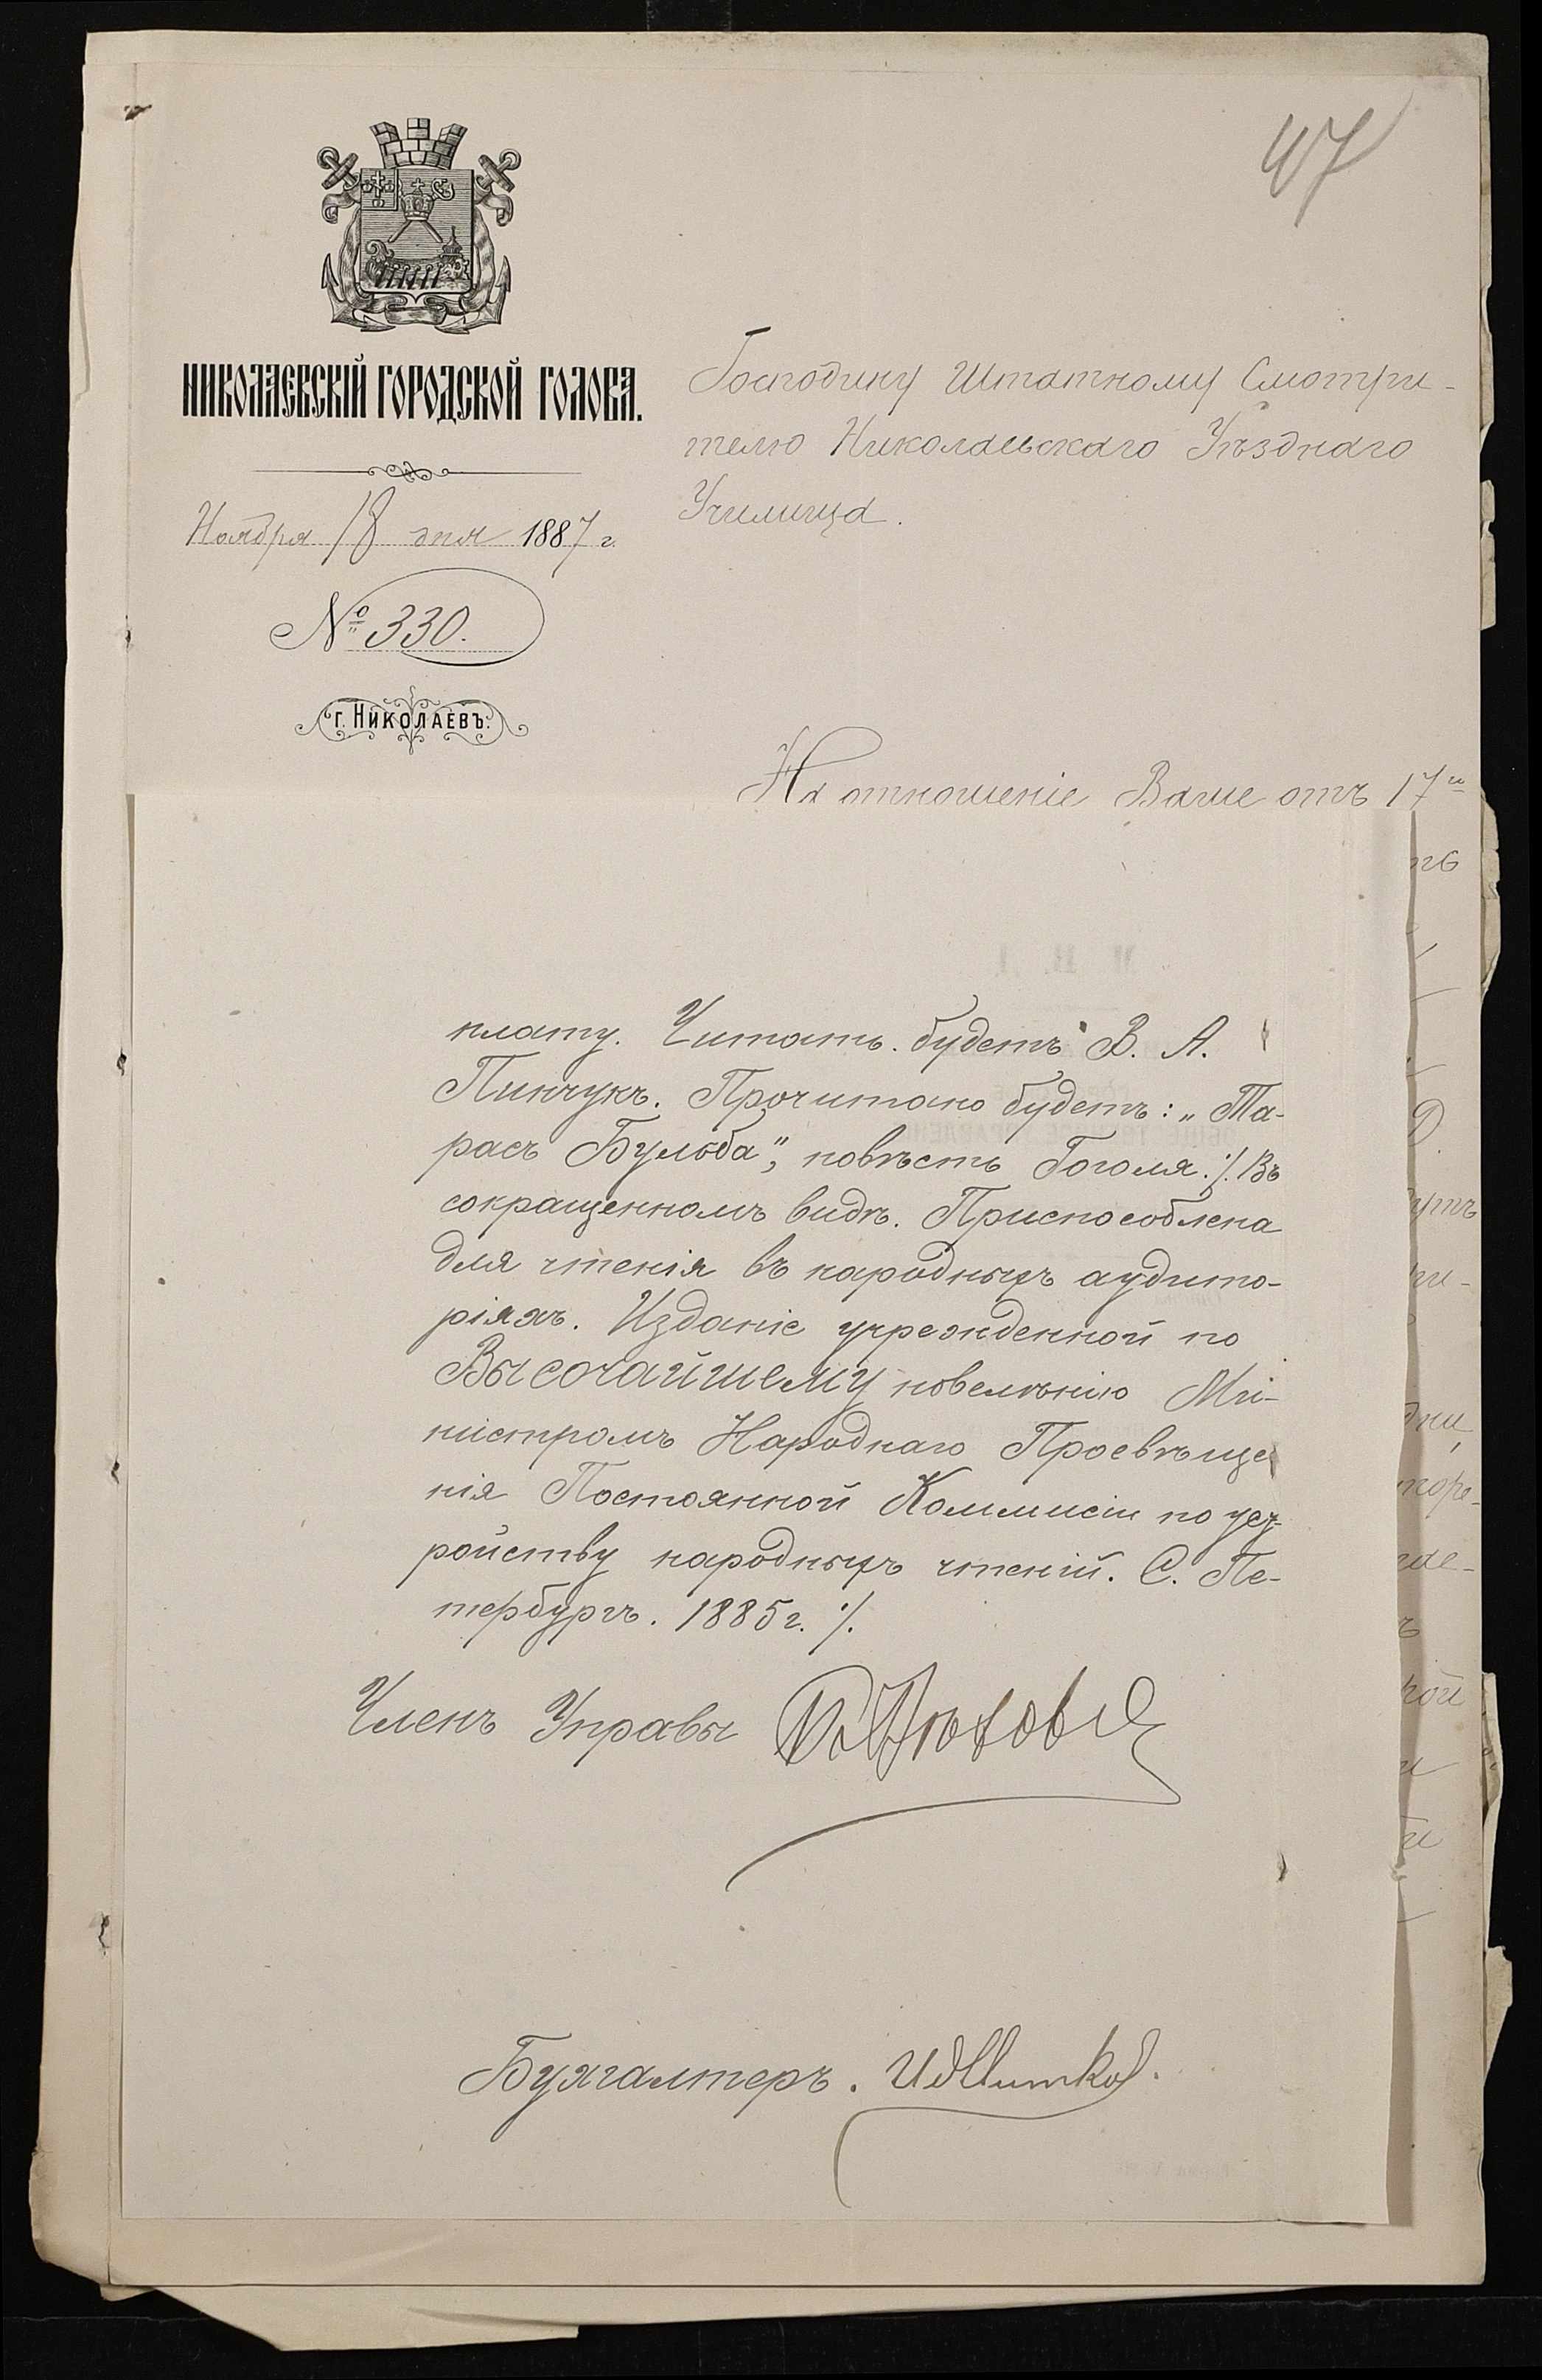 47
НИКОЛАЕВСКІЙ ГОРОДСКОЙ ГОЛОВА.
Ноября 18 дня 1887 г.
№ 330.
г. НИКОЛАЕВЪ.
Господину Штатному Смотри-
телю Николаевскаго Уѣзднаго
Училища.
На отношеніе Ваше отъ 17го
плату. Читать будетъ В. А.
Пинчукъ. Прочитано будетъ: „Та-
расъ Бульба", повѣсть Гоголя ·/. Въ
сокращенномъ видѣ. Приспособлена
для чтенія въ народныхъ аудито-
ріяхъ. Изданіе учрежденной по
Высочайшему повелѣнію Ми-
нистромъ Народнаго Просвѣще
нія Постоянной Коммисіи по уст-
ройству народныхъ чтеній. С. Пе-
тербургъ. 1885 г. ·/.
Членъ Управы
Бухгалтеръ.